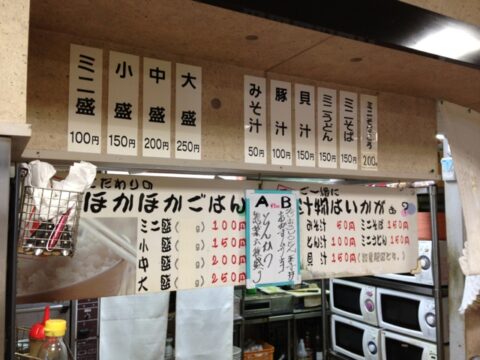 ミニ盛 100円
小盛 150円
中盛 200円
大盛 250円
みそ汁 50円
豚汁 100円
貝汁 150円
ミニうどん 150円
ミニそば 150円
200円
こだわりの
ほかほかごはん
ミニ盛( g) 100円
小盛( g) 150円
中盛( g) 200円
大盛( g) 250円
A
B
ご一緒に
汁物はいかがぁ?
みそ汁 50円 ミニそば 150円
とん汁 100円 ミニうどん 150円
貝汁 150円